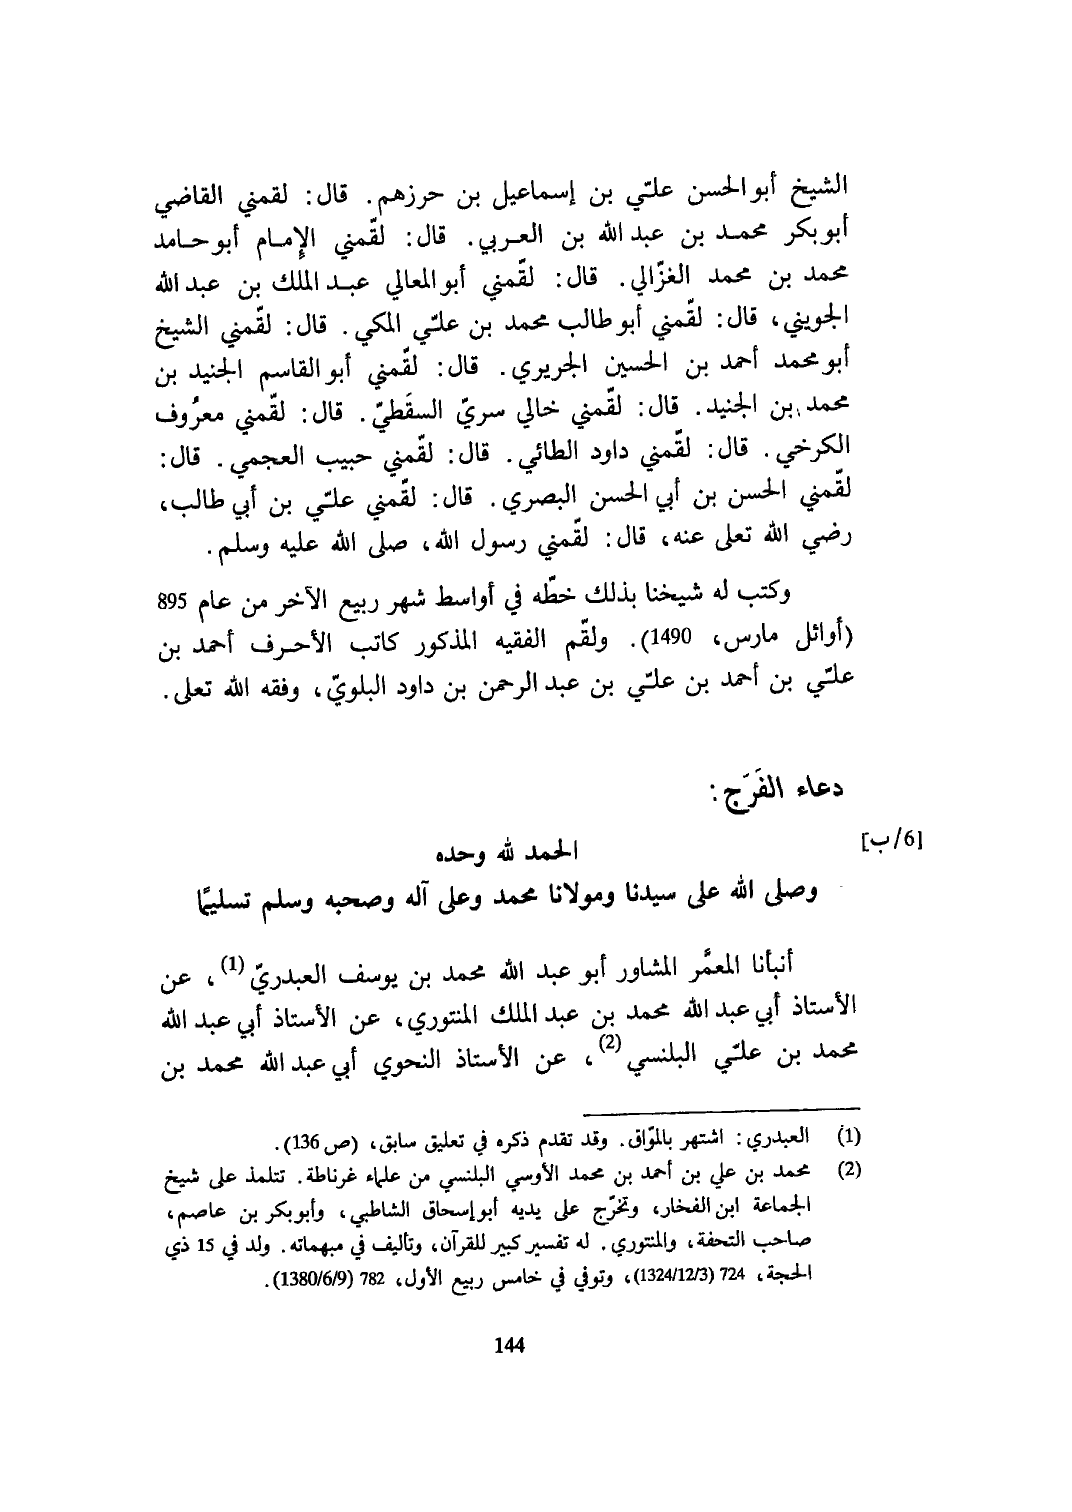 الشيخ أبو الحسن عليّ بن إسماعيل بن حرزهم. قال: لقمني القاضي
أبو بكر محمد بن عبد الله بن العربي. قال: لقّمني الإمام أبو حامد
محمد بن محمد الغزّالي. قال: لقّمني أبو المعالي عبد الملك بن عبد الله
الجويني، قال: لقّمني أبو طالب محمد بن عليّ المكي. قال: لقّمني الشيخ
أبو محمد أحمد بن الحسين الجريري. قال: لقّمني أبو القاسم الجنيد بن
محمد بن الجنيد. قال: لقّمني خالي سريّ السقَطيّ. قال: لقّمني معرُوف
الكرخي. قال: لقّمني داود الطائي. قال: لقّمني حبيب العجمي. قال:
لقّمني الحسن بن أبي الحسن البصري. قال: لقّمني عليّ بن أبي طالب،
رضي الله تعلى عنه، قال: لقّمني رسول الله، صلى الله عليه وسلم.
وكتب له شيخنا بذلك خطّه في أواسط شهر ربيع الآخر من عام 895
(أوائل مارس، 1490). ولقّم الفقيه المذكور كاتب الأحرف أحمد بن
عليّ بن أحمد بن عليّ بن عبد الرحمن بن داود البلويّ، وفقه الله تعلى.
دعاء الفَرَج:
[6/ب]
الحمد لله وحده
وصلى الله على سيدنا ومولانا محمد وعلى آله وصحبه وسلم تسليمًا
أنبأنا المعمَّر المشاور أبو عبد الله محمد بن يوسف العبدريّ(1)، عن
الأستاذ أبي عبد الله محمد بن عبد الملك المنتوري، عن الأستاذ أبي عبد الله
محمد بن عليّ البلنسي(2)، عن الأستاذ النحوي أبي عبد الله محمد بن
(1) العبدري: اشتهر بالموّاق. وقد تقدم ذكره في تعليق سابق، (ص 136).
(2) محمد بن علي بن أحمد بن محمد الأوسي البلنسي من علماء غرناطة. تتلمذ على شيخ
الجماعة ابن الفخار، وتخرّج على يديه أبو إسحاق الشاطبي، وأبو بكر بن عاصم،
صاحب التحفة، والمنتوري. له تفسير كبير للقرآن، وتأليف في مبهماته. ولد في 15 ذي
الحجة، 724 (1324/12/3)، وتوفي في خامس ربيع الأول، 782 (1380/6/9).
144